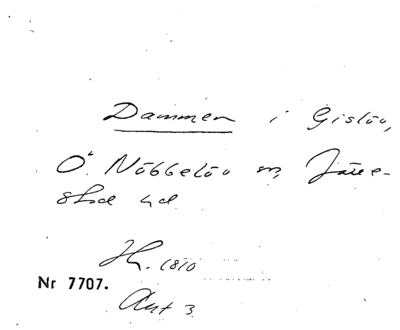 Dammen i Gislöv,
Ö. Nöbbelöv sn, Järre-
stad hd
H. 1810
Nr 7707.
Ant 3